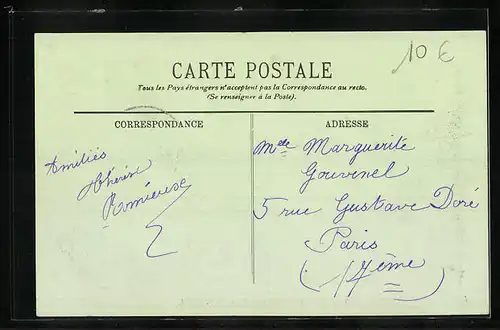 10 €
CARTE POSTALE
Tous les Pays étrangers n'acceptent pas la Correspondance au recto.
(Se renseigner à la Poste).
CORRESPONDANCE
Amitiés
Thérèse
ADRESSE
Melle Marguerite
Gouvenel
5 rue Gustave Doré
Paris
(17ème)